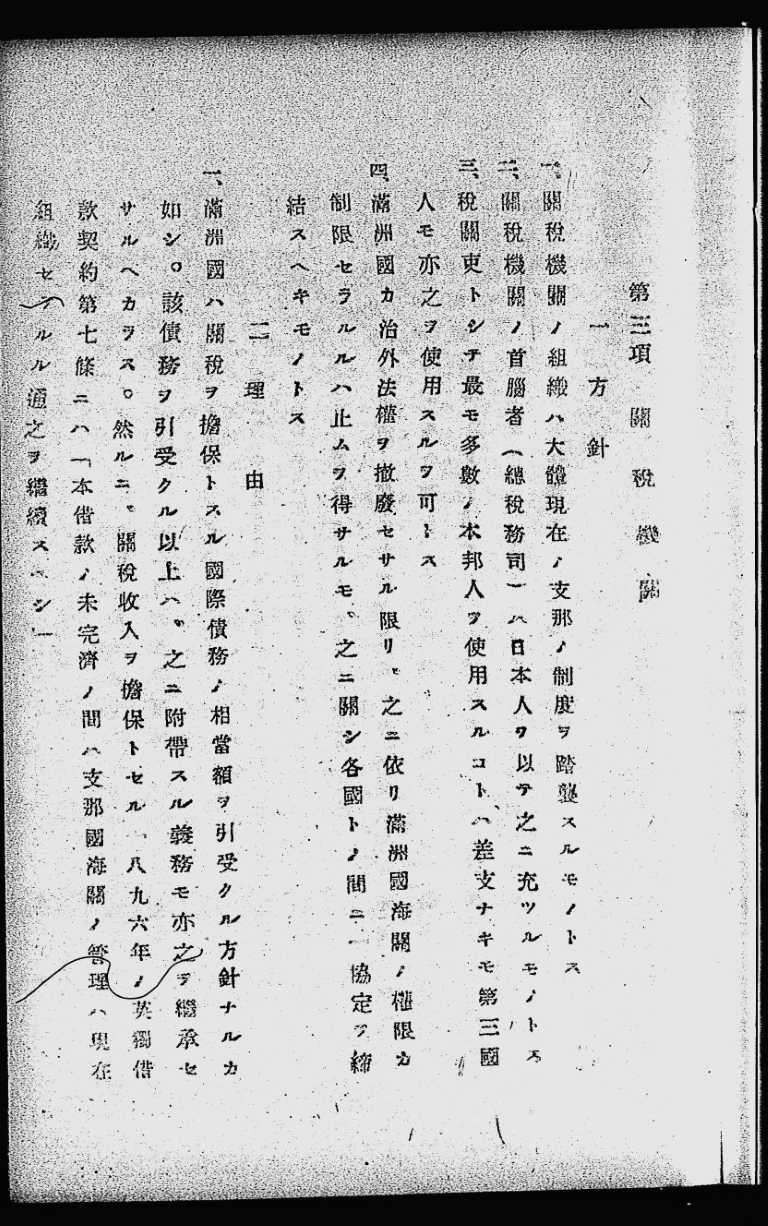 第三項　關稅機關
一　方針
一、關稅機關ノ組織ハ大體現在ノ支那ノ制度ヲ踏襲スルモノトス
二、關稅機關ノ首腦者（總稅務司）ハ日本人ヲ以テ之ニ充ツルモノトス
三、稅關吏トシテ最モ多數ノ本邦人ヲ使用スルコトハ差支ナキモ第三國
人モ亦之ヲ使用スルヲ可トス
四、滿洲國カ治外法權ヲ撤廢セサル限リ、之ニ依リ滿洲國海關ノ權限カ
制限セラルルハ止ムヲ得サルモ。之ニ關シ各國トノ間ニ一協定ヲ締
結スヘキモノトス
二　理　由
一、滿洲國ハ關稅ヲ擔保トスル國際債務ノ相當額ヲ引受クル方針ナルカ
如シ。該債務ヲ引受クル以上ハ。之ニ附帶スル義務モ亦之ヲ繼承セ
サルヘカラス。然ルニ。關稅收入ヲ擔保トセル一八九六年ノ英獨借
款契約第七條ニハ「本借款ノ未完濟ノ間ハ支那國海關ノ管理ハ現在
組織セラルル通之ヲ繼續スヘシ」